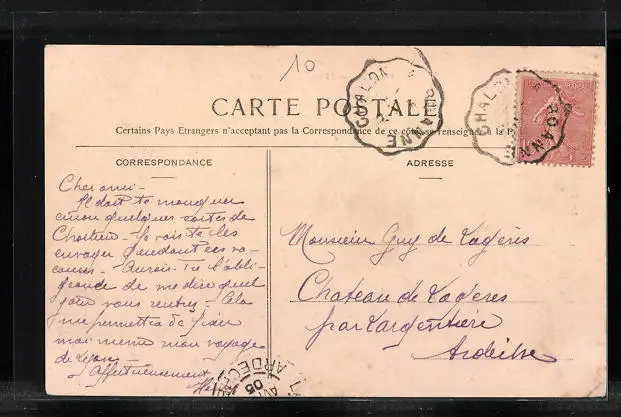 10
CHALON A ROANNE
CHALON A ROANNE
CARTE POSTALE
Certains Pays Etrangers n'acceptent pas la Correspondance de ce côté se renseigner à la
CORRESPONDANCE
ADRESSE
Cher ami -
Il doit te manquer
encore quelques cartes de
- Je vais te les
envoyer pendant ces va-
cances - Aurais-Tu l'obli-
geance de me dire quel
jour vous rentrez - Cela
me permettra de fixer
moi même mon voyage
de Lyon -
Affectueusement
Monsieur Guy de Lagérès
Chateau de Lageres
par Largentière
Ardèche
05
ARDECHE